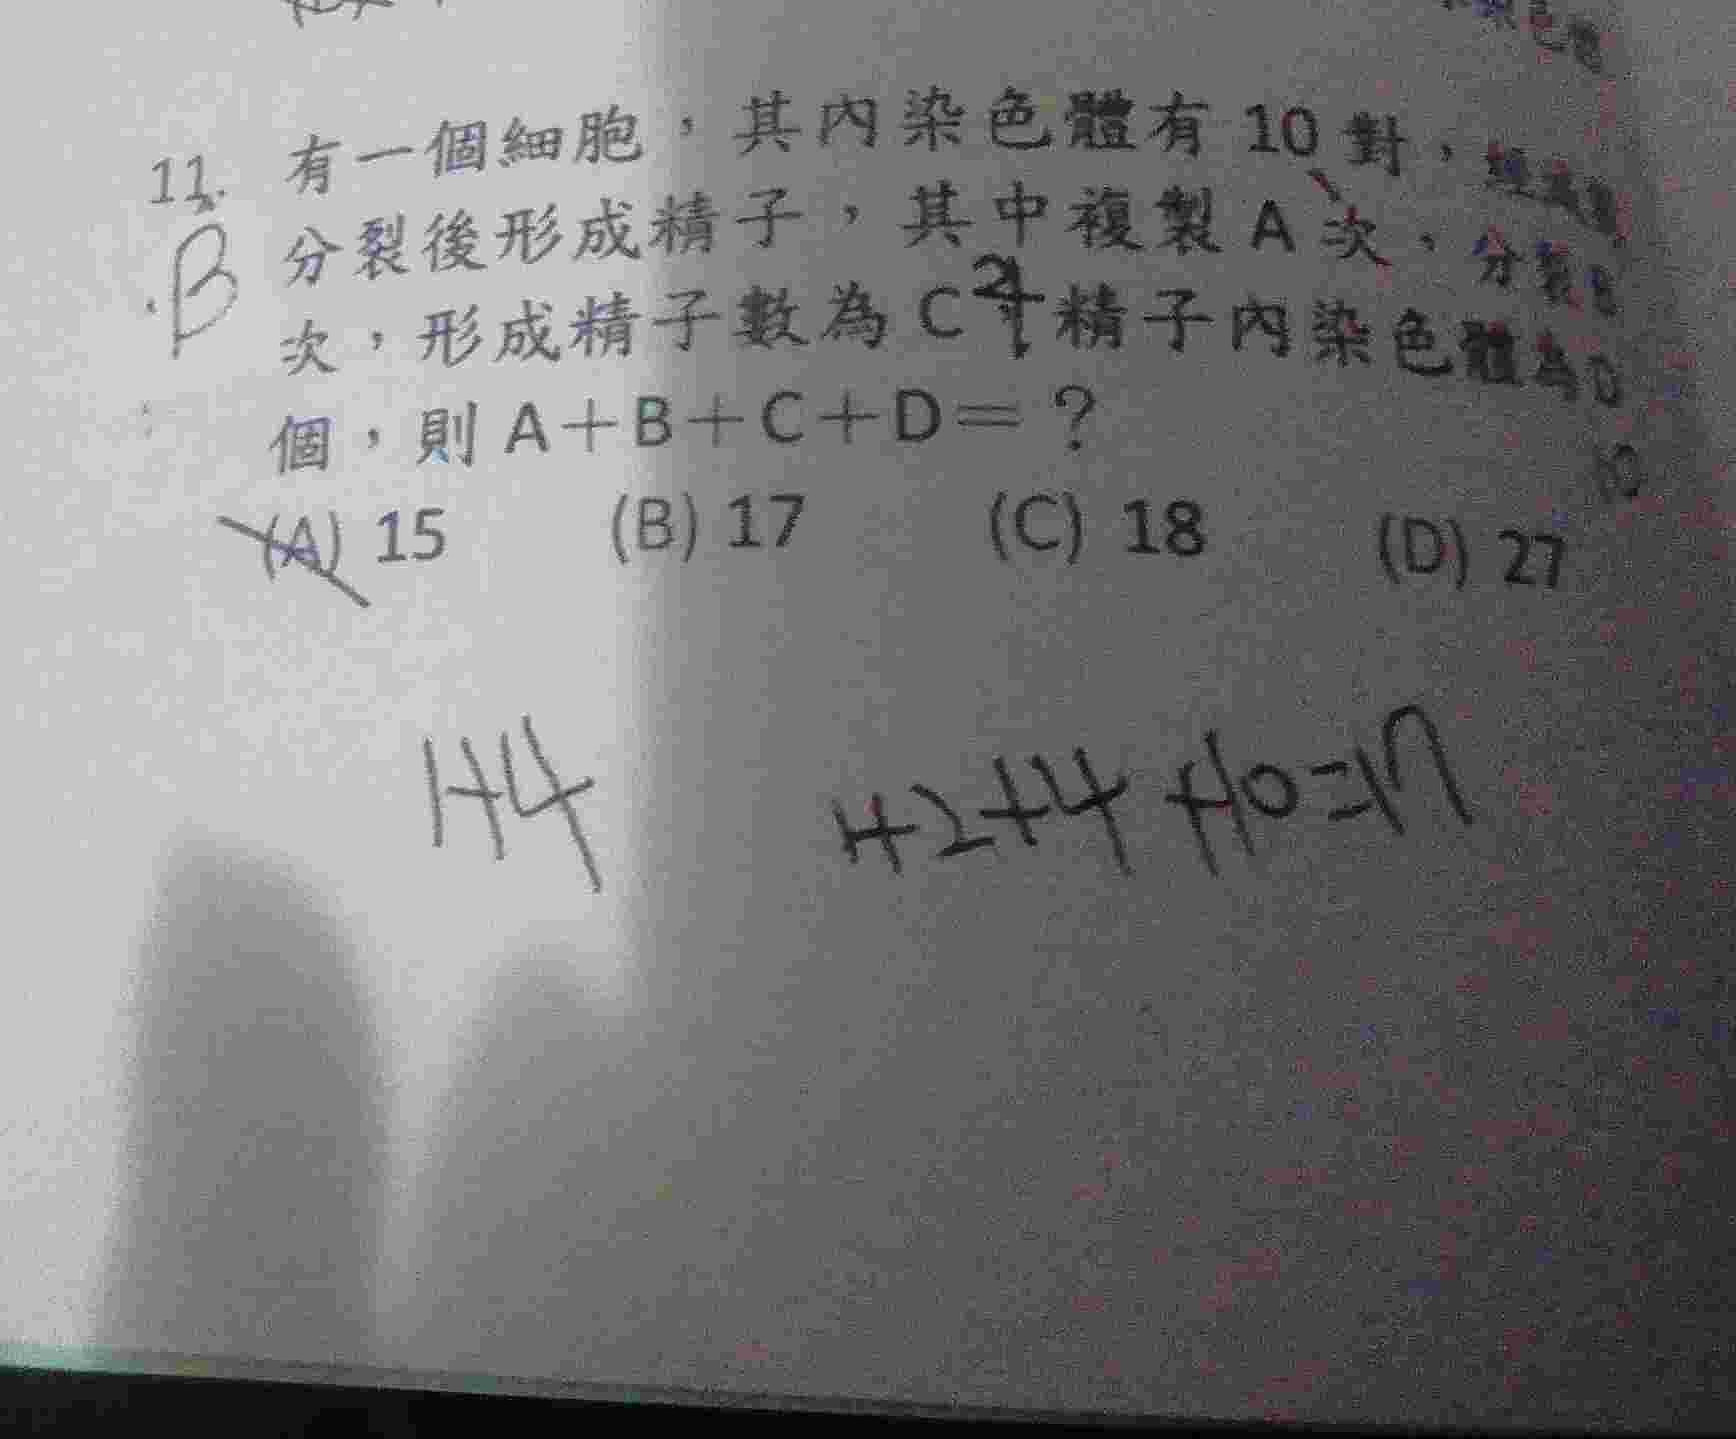 11. 有一個細胞,其內染色體有 10 對,經減數
分裂後形成精子,其中複製 A 次、分裂 B
次,形成精子數為 C 精子內染色體為 D
個,則 A+B+C+D=?
(A) 15 (B) 17 (C) 18 (D) 27
B
4
10
1+4
1+2+4+10=17